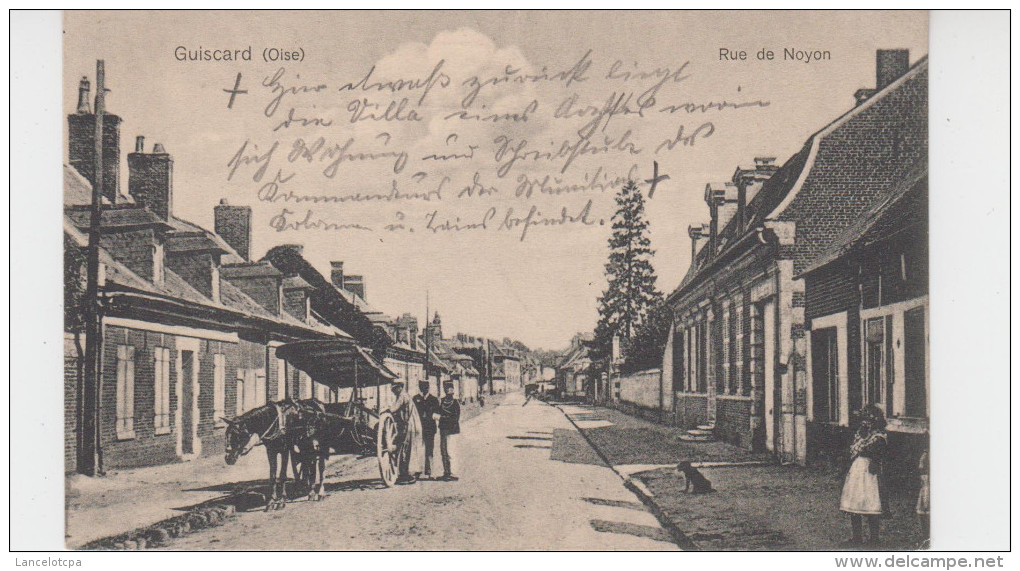 Guiscard (Oise)
Rue de Noyon
+ Hier etwaß zurück liegt
die Villa eines Arztes worin
sich Wohnung und Schreibstube des
Kommandeurs der Munitions +
Kolonnen u. Trains befindet.
Lancelotcpa
www.delcampe.net